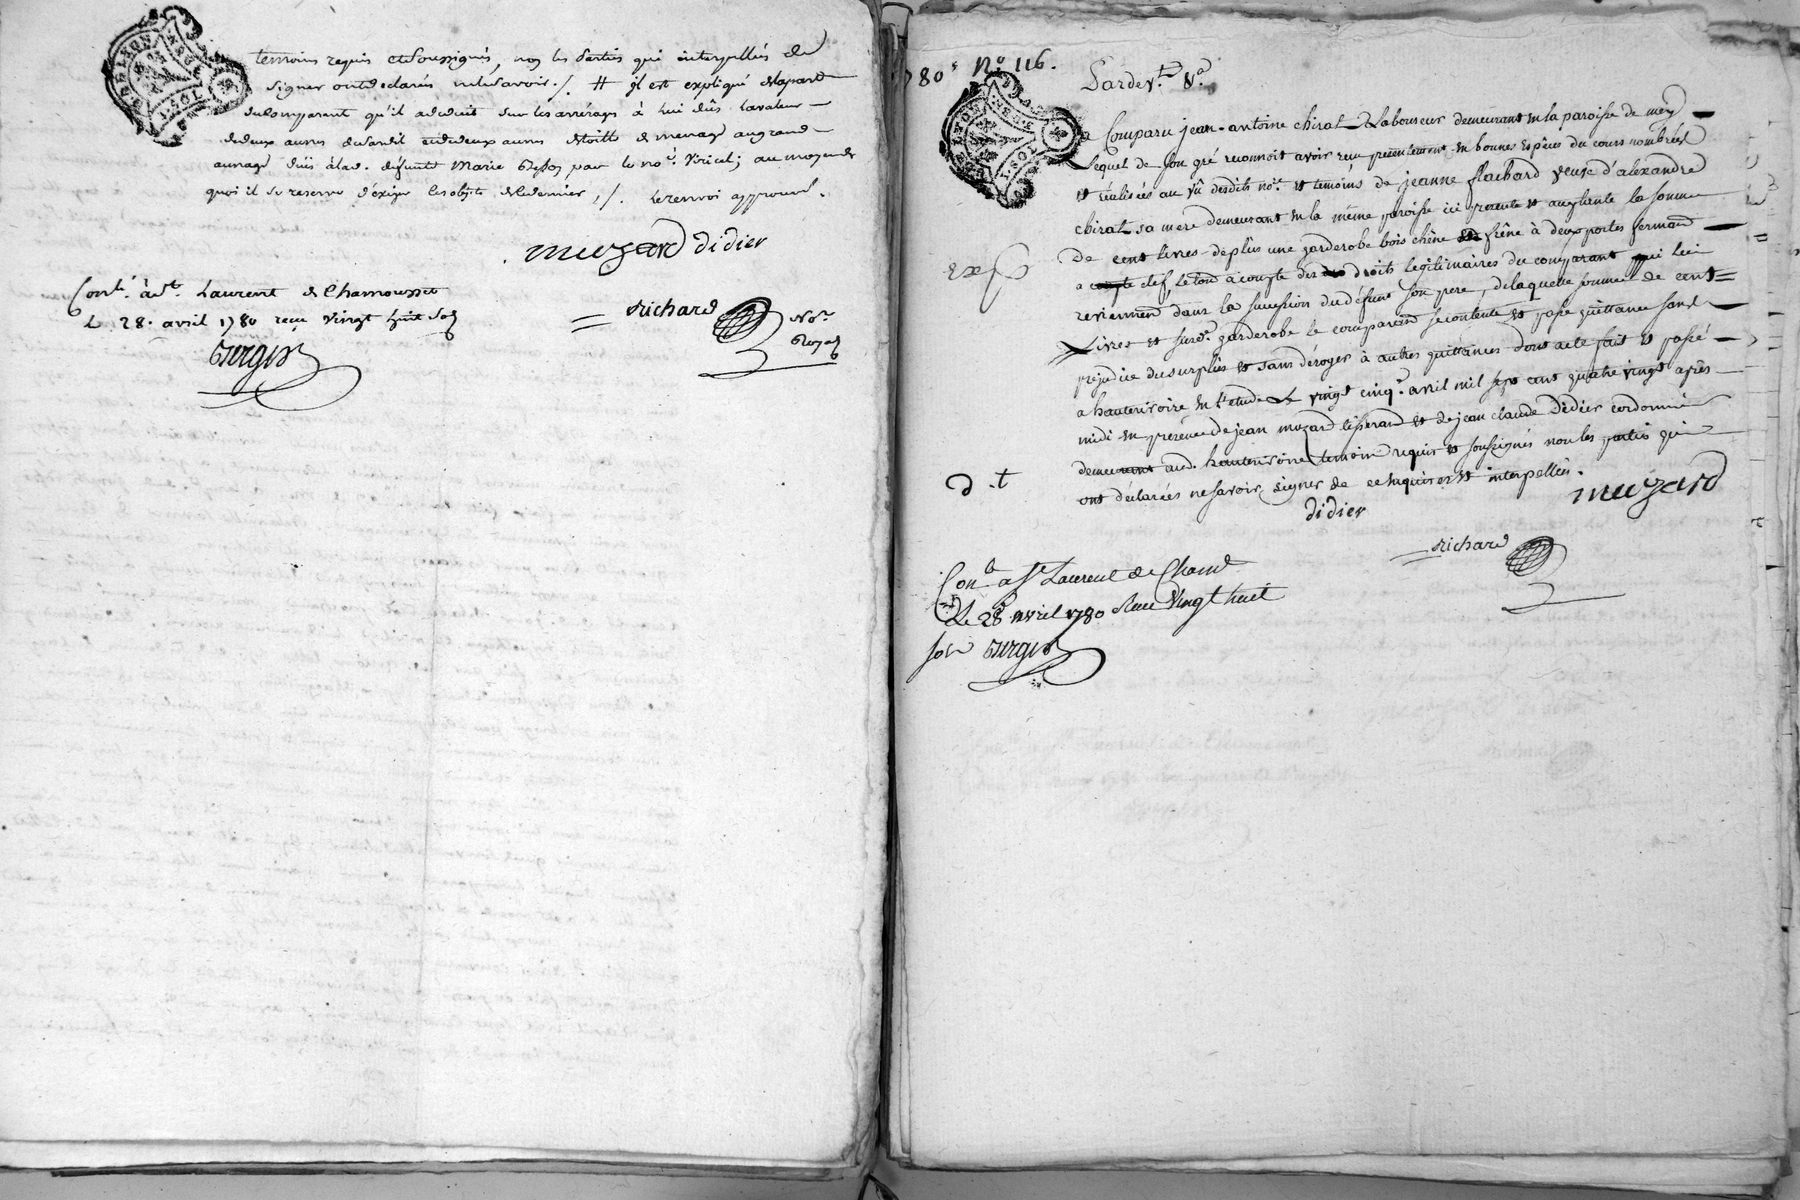 temoins requis et soussignés, non les parties qui interpellés de
signer ont declarés ne le savoir ./. # il est expliqué de la part
du comparant qu'il a deduit sur les arrérages à lui dûs la valeur
de deux aunes et de deux aunes de toille de menage
à lad. deffunte Marie par le no.e Viricel; au moyen de
quoi il se reserve d'éxiger les objets ./. le renvoi approuvé.
muzard didier
Conl.é à S.t Laurent de Chamousset
le 28. avril 1780 recu vingt huit sols
richard
No.re
Royal
1780. No. 116.
Pardev.t &.a
a Comparu jean-antoine chirat Laboureur demeurant en la paroisse de mey
Lequel de son gré reconnoit avoir reçu presentement en bonnes espèces du cours nombrées
et réalisées au vû desdits no.re et temoins de jeanne flachard veuve d'alexandre
chirat sa mere demeurant en la même paroisse ici presente et acceptante la somme
de cent livres de plus une garderobe bois chêne et frêne à deux portes fermant
a clef, le tout à compte des droits légitimaires du comparant qui lui
reviennent dans la succession du défunt son pere, de laquelle somme de cent
Livres et susd.e garderobe le comparant se contente et passe quittance sans
préjudice du surplus et sans déroger à autres quittances dont acte fait et passé
a hauterivoire en l'etude Le vingt cinq.e avril mil sept cent quatre vingt après
midi en presence de jean muzard tisserand et de jean claude Didier cordonnier
demeurant aud. hauterivoire temoins requis et soussignés non les parties qui
ont déclarées ne savoir signer de ce enquises et interpellées.
exp
d.t
didier
muzard
richard
Con.lé a S.t Laurent de Cham.t
Le 28 avril 1780 Recu Vingt huit
sols